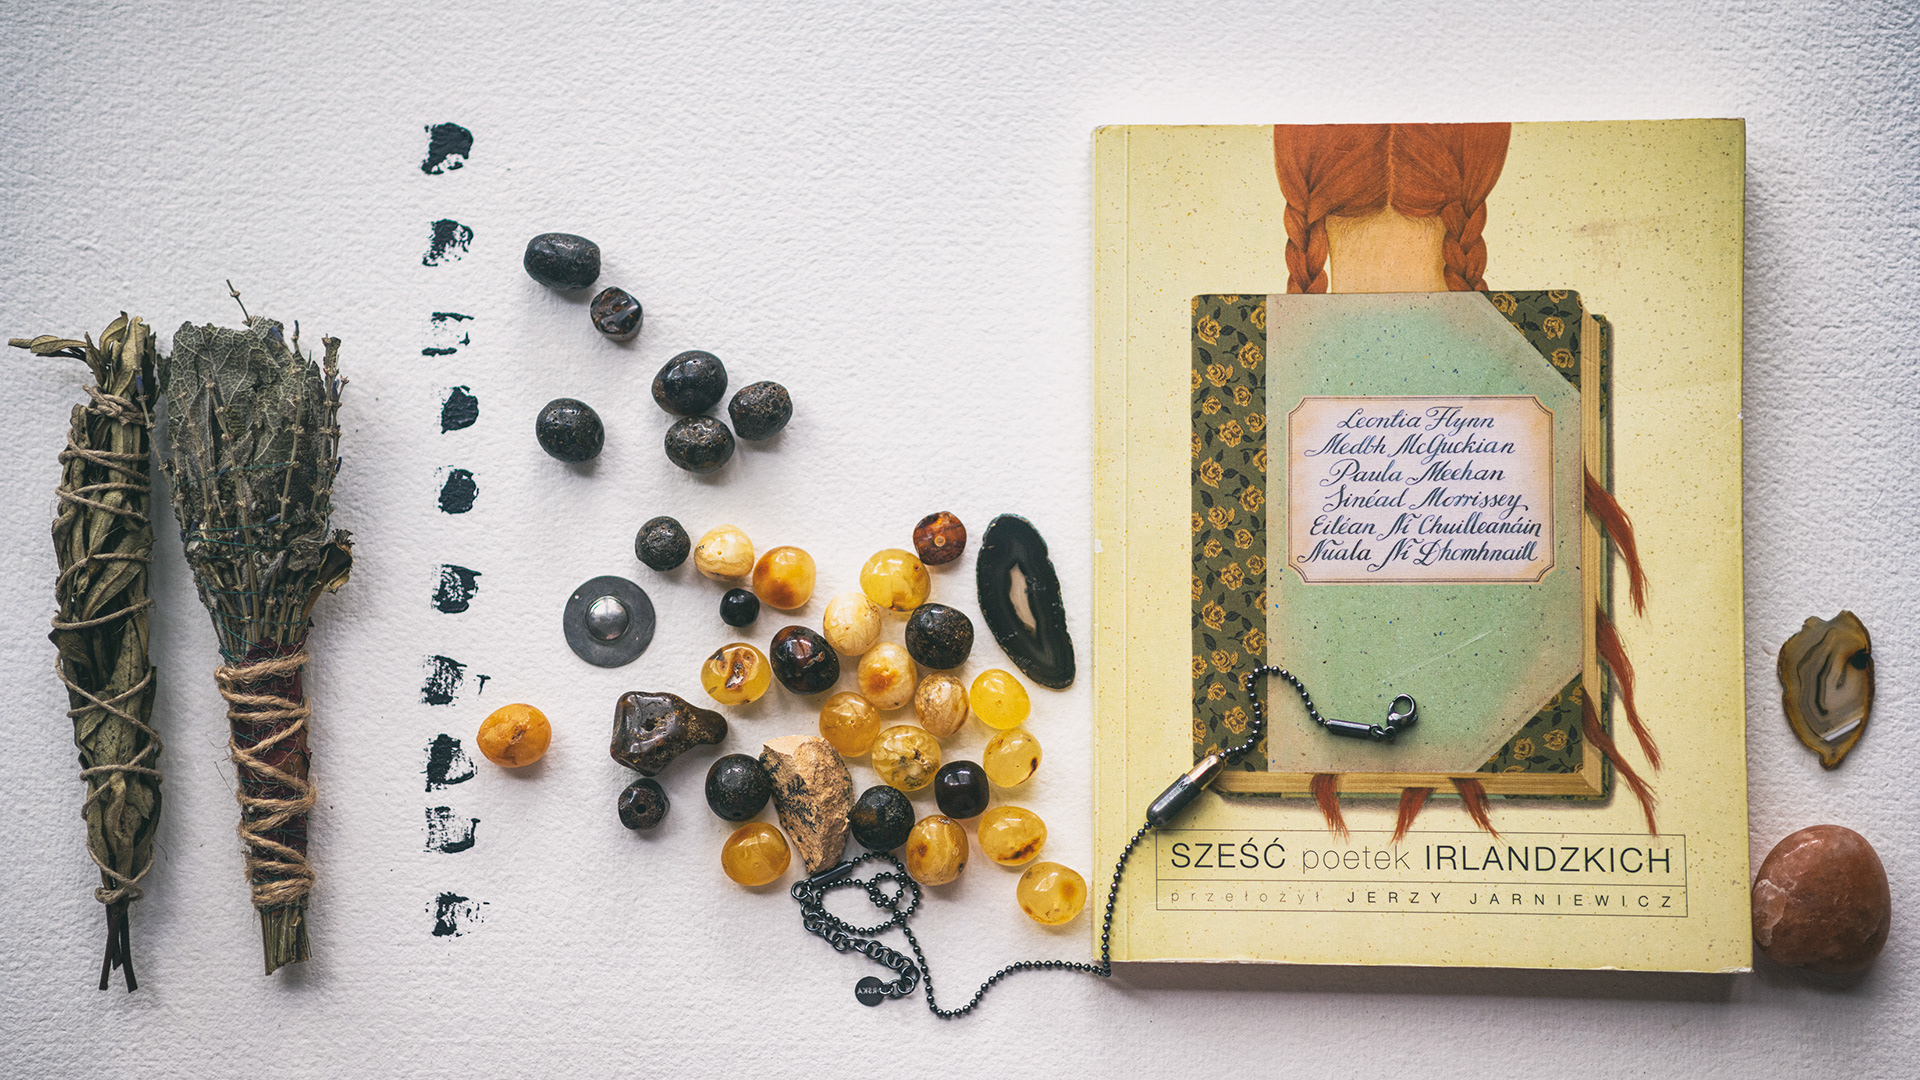 Leontia Flynn
Medbh McGuckian
Paula Meehan
Sinéad Morrissey
Eiléan Ní Chuilleanáin
Nuala Ní Dhomhnaill
SZEŚĆ poetek IRLANDZKICH
przełożył JERZY JARNIEWICZ